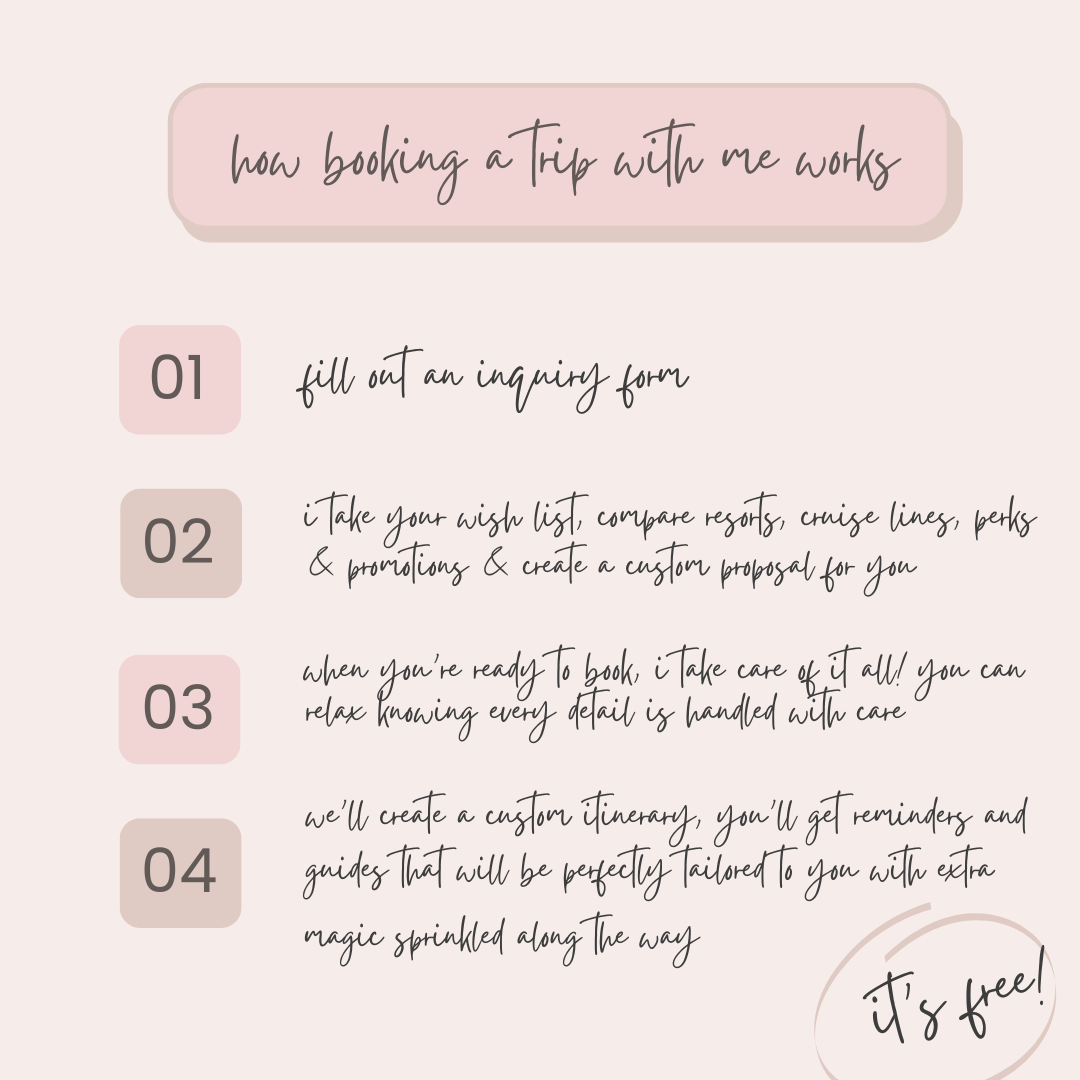 how booking a trip with me works
01
fill out an inquiry form
02
i take your wish list, compare resorts, cruise lines, perks
& promotions & create a custom proposal for you
03
when you're ready to book, i take care of it all! you can
relax knowing every detail is handled with care
04
we'll create a custom itinerary, you'll get reminders and
guides that will be perfectly tailored to you with extra
magic sprinkled along the way
it's free!